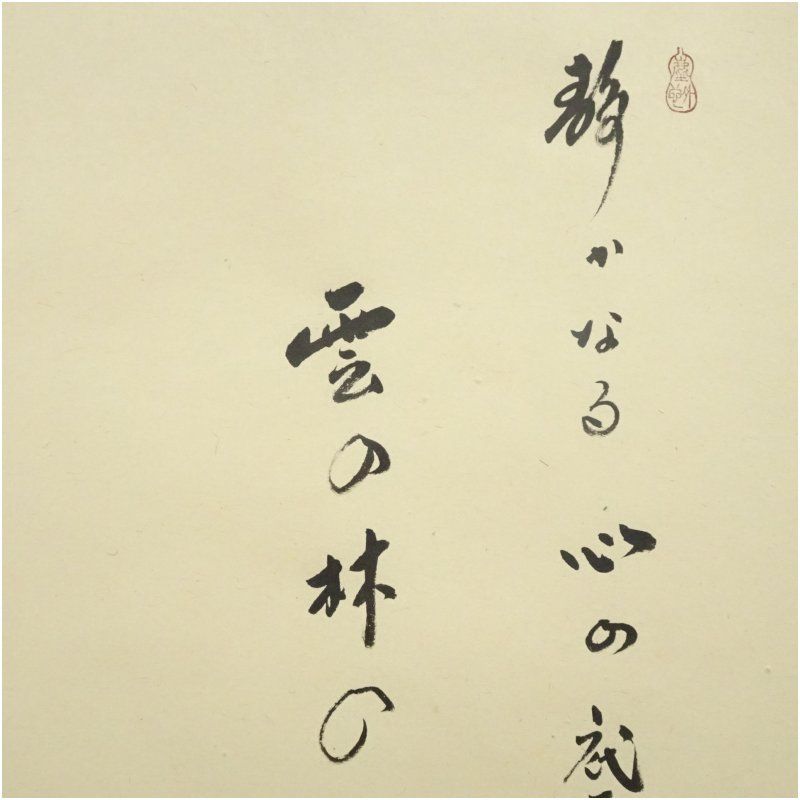 静かなる心の底
雲の林の